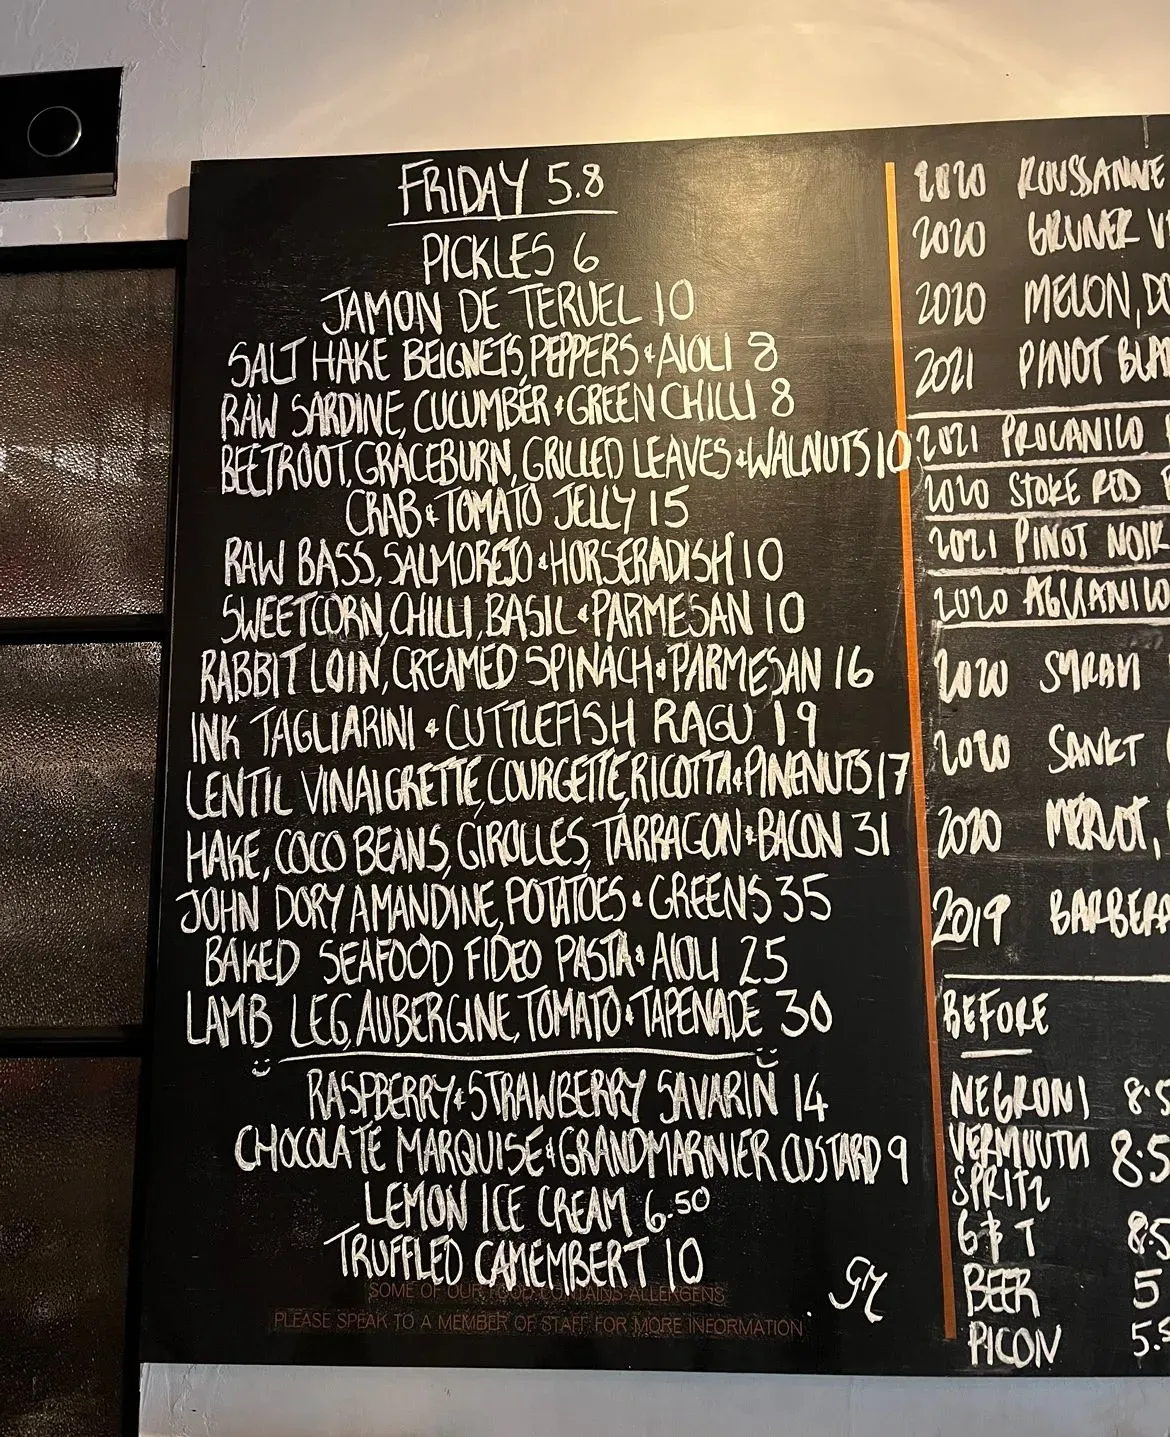 FRIDAY 5.8
PICKLES 6
JAMON DE TERUEL 10
SALT HAKE BEIGNETS, PEPPERS & AIOLI 8
RAW SARDINE, CUCUMBER & GREEN CHILLI 8
BEETROOT, GRACEBURN, GRILLED LEAVES & WALNUTS 10
CRAB & TOMATO JELLY 15
RAW BASS, SALMOREJO & HORSERADISH 10
SWEETCORN, CHILLI, BASIL & PARMESAN 10
RABBIT LOIN, CREAMED SPINACH & PARMESAN 16
INK TAGLIARINI & CUTTLEFISH RAGU 19
LENTIL VINAIGRETTE, COURGETTE, RICOTTA & PINENUTS 17
HAKE, COCO BEANS, GIROLLES, TARRAGON & BACON 31
JOHN DORY AMANDINE, POTATOES & GREENS 35
BAKED SEAFOOD FIDEO PASTA & AIOLI 25
LAMB LEG, AUBERGINE, TOMATO & TAPENADE 30
RASPBERRY & STRAWBERRY SAVARIN 14
CHOCOLATE MARQUISE & GRANDMARNIER CUSTARD 9
LEMON ICE CREAM 6.50
TRUFFLED CAMEMBERT 10
SOME OF OUR FOOD CONTAINS ALLERGENS
PLEASE SPEAK TO A MEMBER OF STAFF FOR MORE INFORMATION
GM
2020 ROUSSANNE
2020 GRUNER
2020 MELON,
2021 PINOT
2021 PROCANICO
2020 STOKE RED
2021 PINOT NOIR
2020 AGLIANICO
2020 SYRAH
2020 SANKT
2020 MERLOT,
2019 BARBERA
BEFORE
NEGRONI 8.5
VERMOUTH 8.5
SPRITZ
G & T 8.5
BEER 5
PICON 5.5